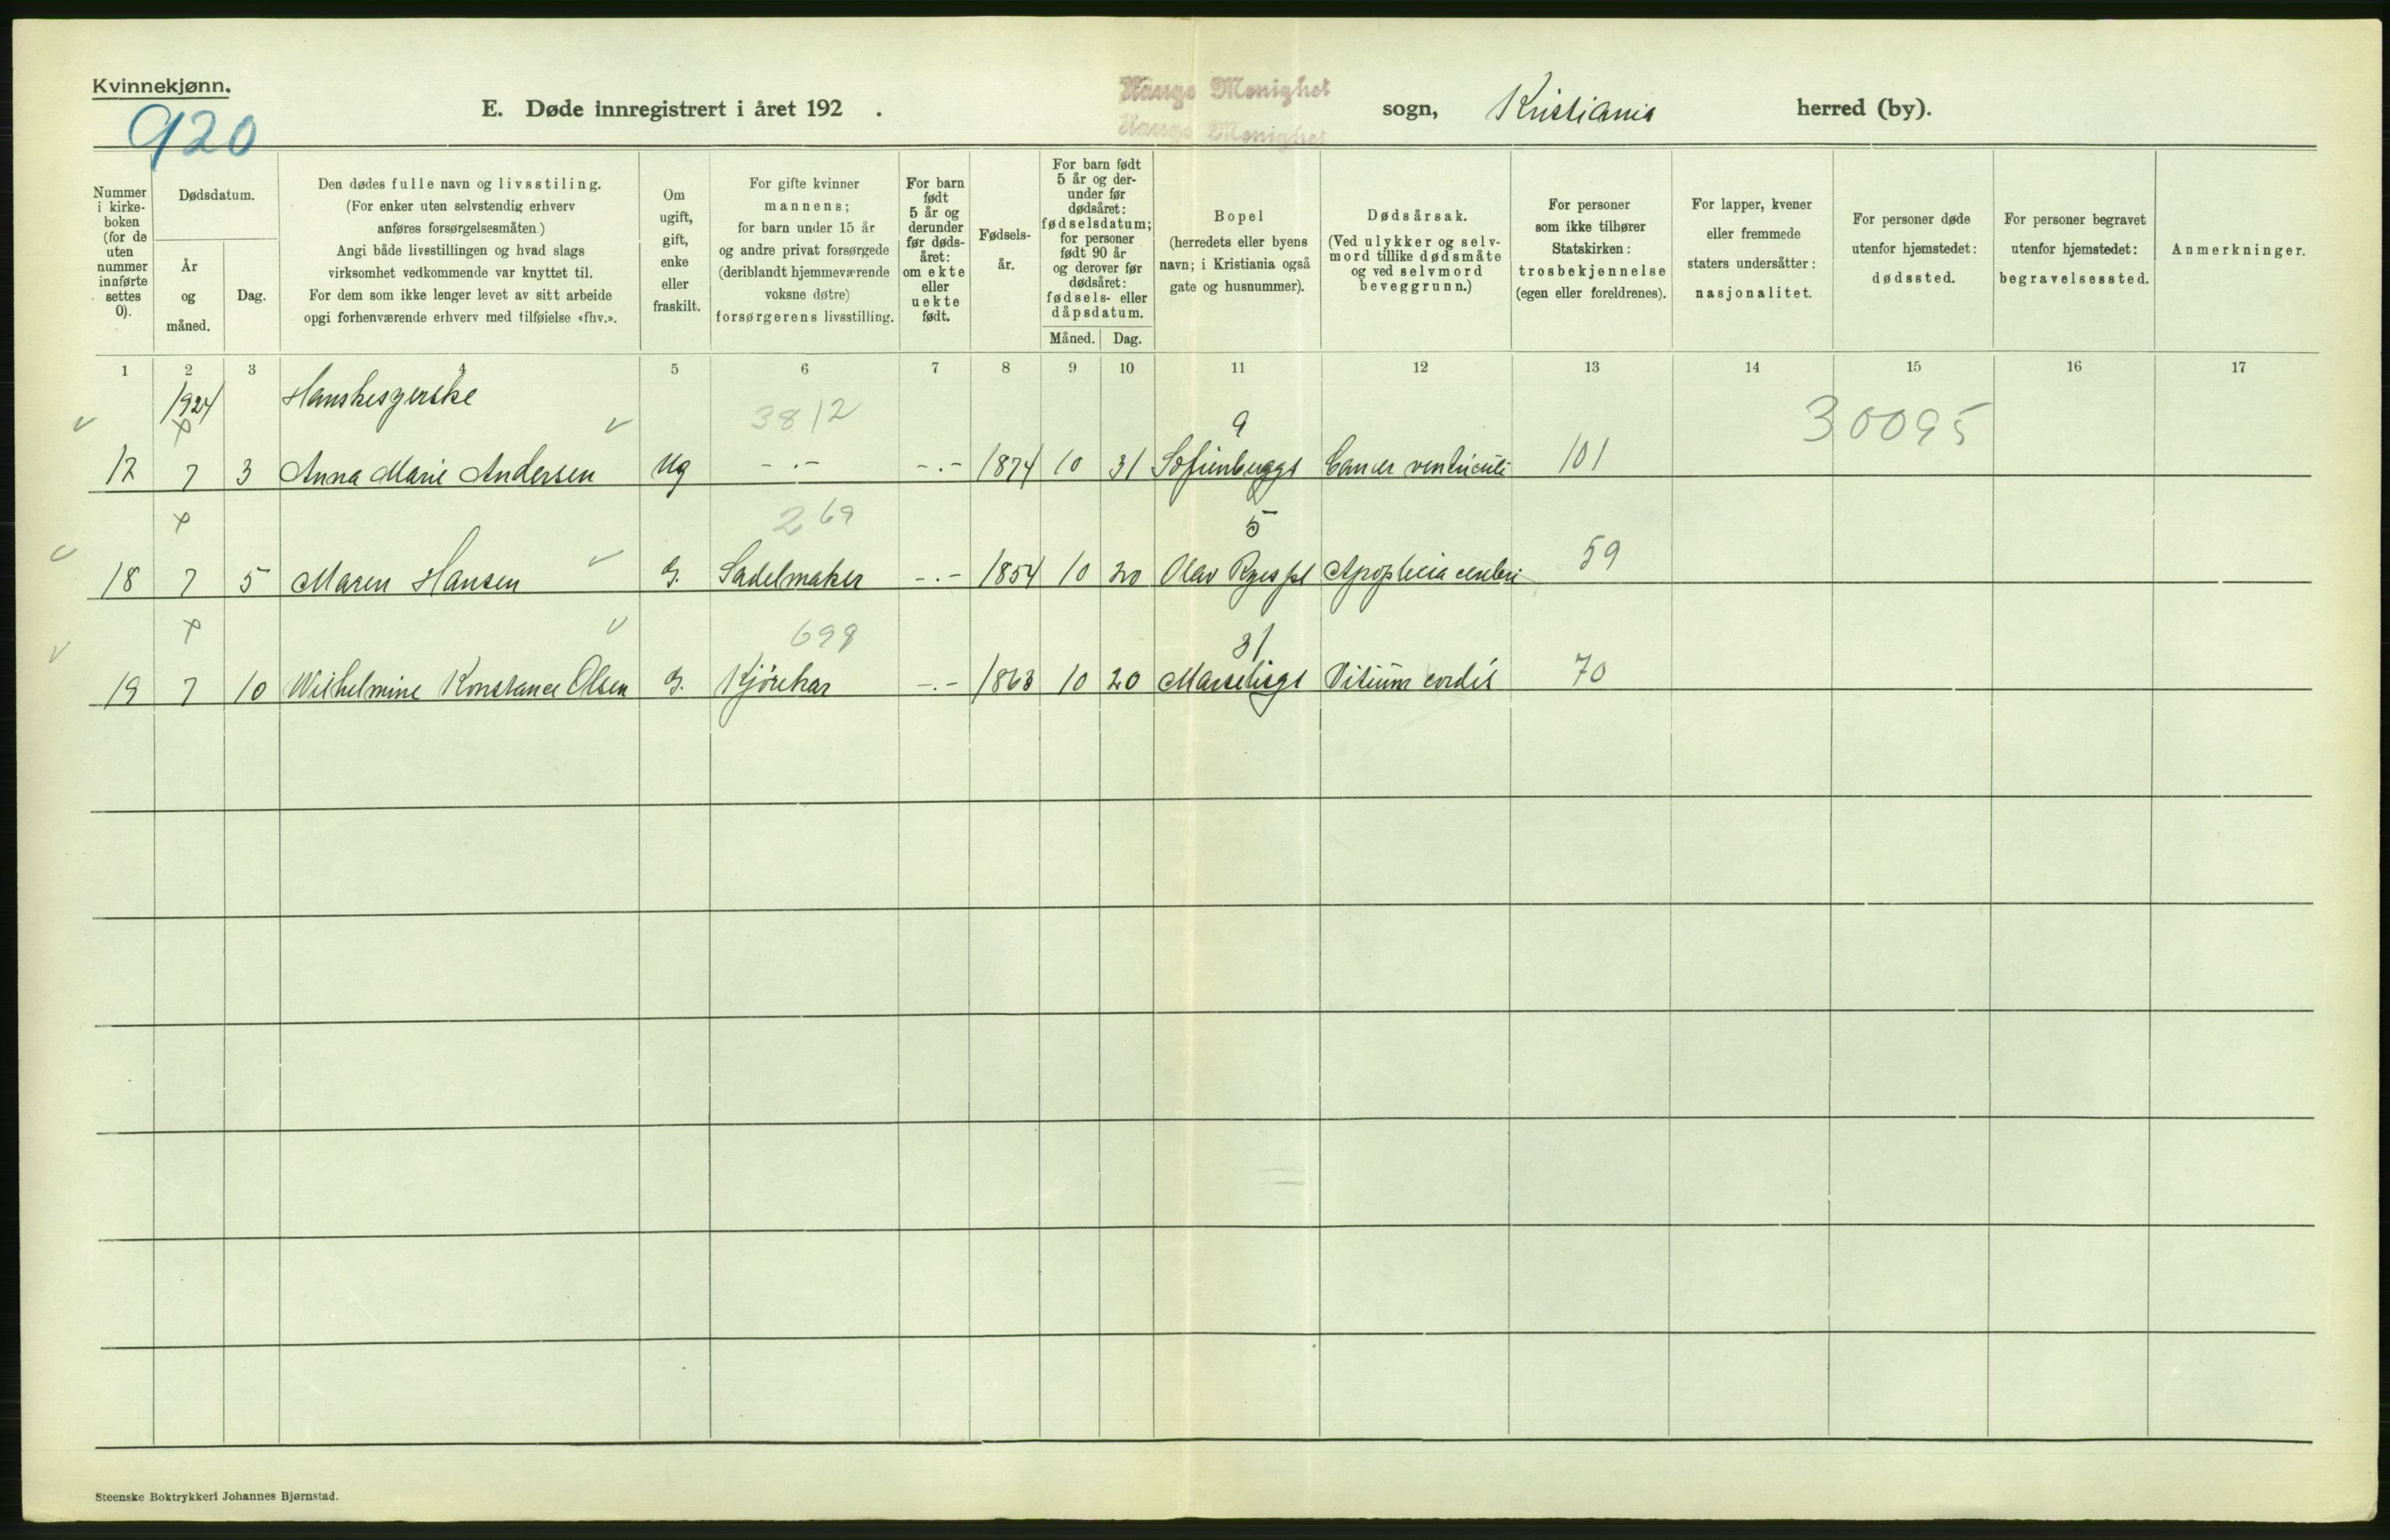 Kvinnekjønn.
920
E. Døde innregistrert i året 192 .
Hauge Menighet
Hauge Menighet
sogn, Kristiania herred (by).
Nummer i kirke-boken (for de uten nummer innførte settes 0).
Dødsdatum.
År og måned.
Dag.
Den dødes fulle navn og livsstiling.
(For enker uten selvstendig erhverv
anføres forsørgelsesmåten.)
Angi både livsstillingen og hvad slags
virksomhet vedkommende var knyttet til.
For dem som ikke lenger levet av sitt arbeide
opgi forhenværende erhverv med tilføielse «fhv.».
Om ugift, gift, enke eller fraskilt.
For gifte kvinner
mannens;
for barn under 15 år
og andre privat forsørgede
(deriblandt hjemmeværende
voksne døtre)
forsørgerens livsstilling.
For barn født 5 år og derunder før døds-året: om ekte eller uekte født.
Fødsels-år.
For barn født
5 år og der-
under før
dødsåret:
fødselsdatum;
for personer
født 90 år
og derover før
dødsåret:
fødsels- eller
dåpsdatum.
Måned. Dag.
Bopel
(herredets eller byens
navn; i Kristiania også
gate og husnummer).
Dødsårsak.
(Ved ulykker og selv-
mord tillike dødsmåte
og ved selvmord
beveggrunn.)
For personer
som ikke tilhører
Statskirken:
trosbekjennelse
(egen eller foreldrenes).
For lapper, kvener
eller fremmede
staters undersåtter:
nasjonalitet.
For personer døde
utenfor hjemstedet:
dødssted.
For personer begravet
utenfor hjemstedet:
begravelsessted.
Anmerkninger.
1 2 3 4 5 6 7 8 9 10 11 12 13 14 15 16 17
1924 Hanskesyerske 3812 9 30095
17 7 3 Anna Marie Andersen Ug -.- -.- 1874 10 31 Sofienberggt Cancer ventriculi 101
269 5
18 7 5 Maren Hansen G. Sadelmaker -.- 1854 10 20 Olav Ryes pl Apoplexia cerebri 59
698 31
19 7 10 Wilhelmine Konstance Olsen G. Kjørekar -.- 1863 10 20 Marselisgt Vitium cordis 70
Steenske Boktrykkeri Johannes Bjørnstad.